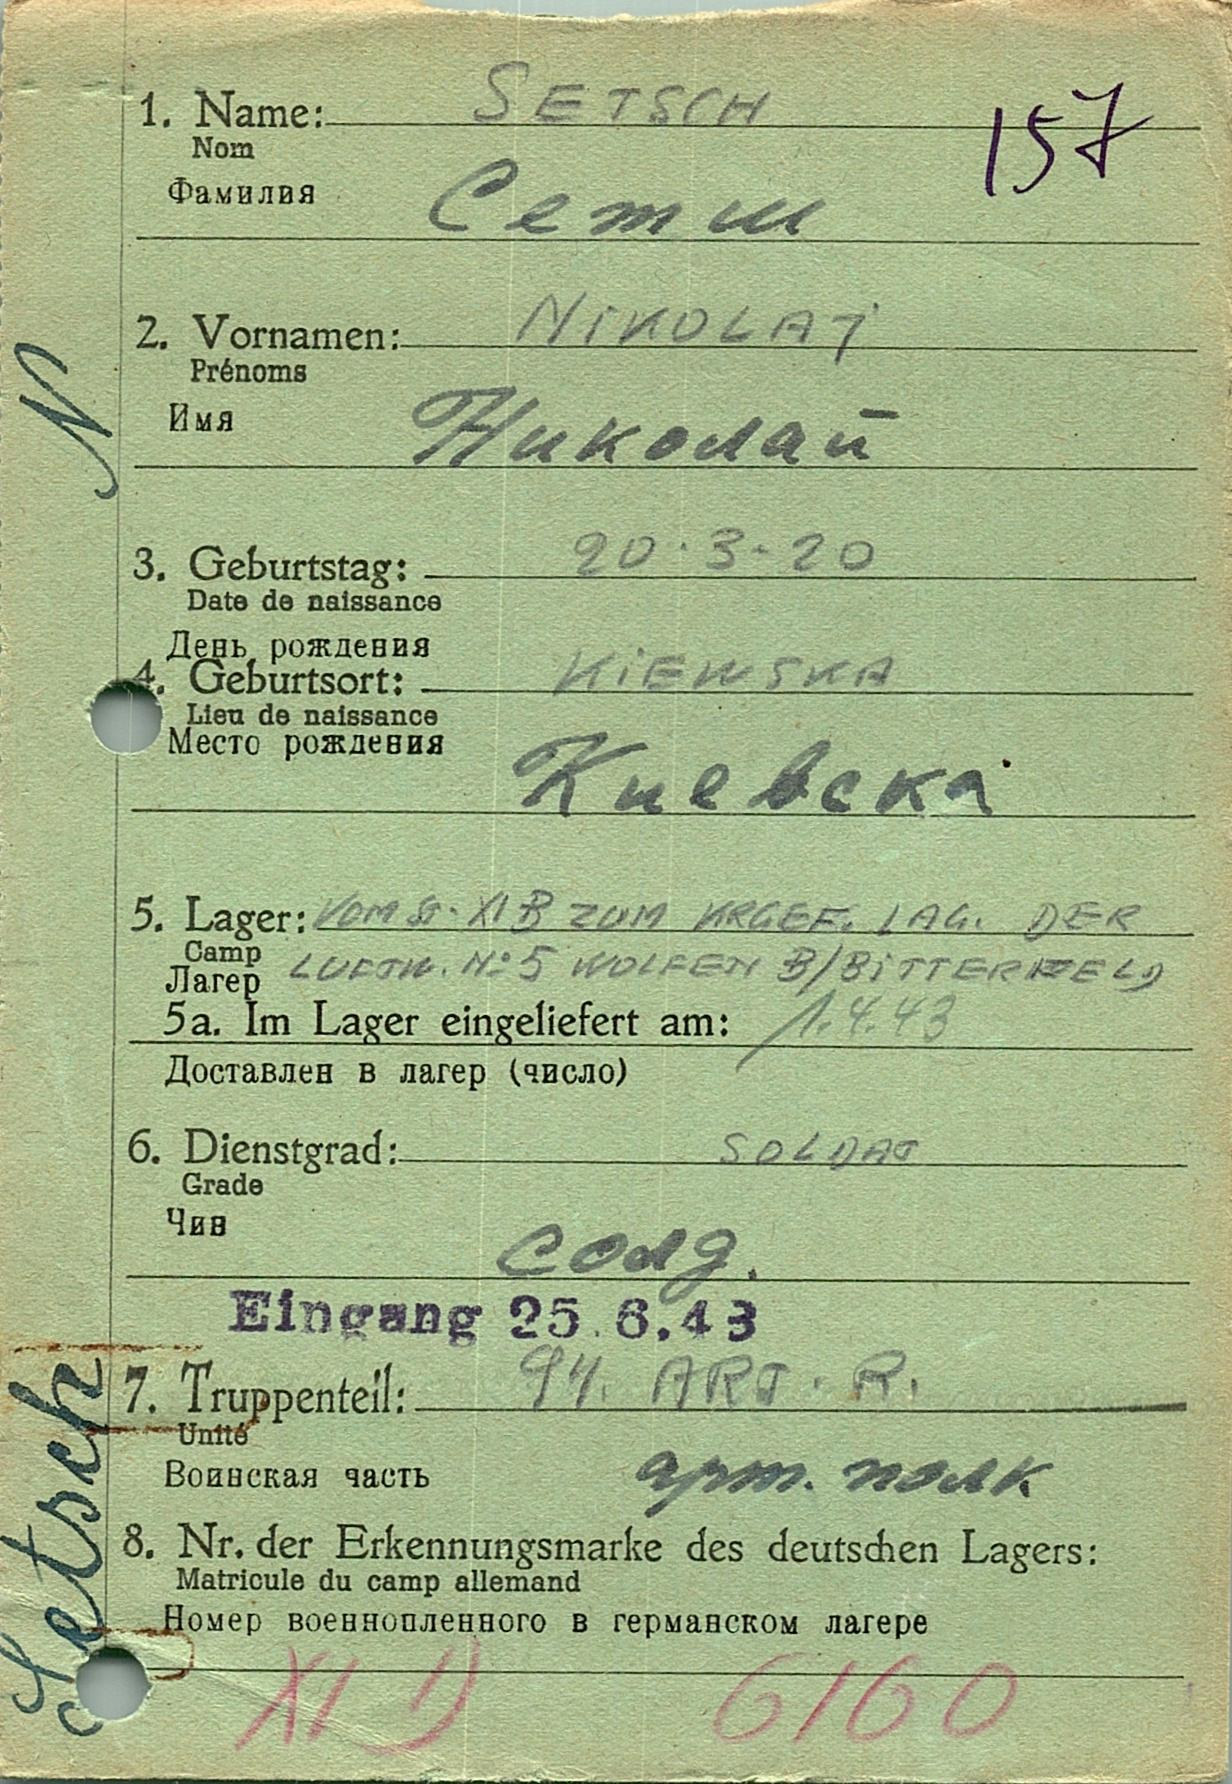 1. Name: SETSCH
157
Nom
Фамилия
Сетш
2. Vornamen: NIKOLAJ
Prénoms
Имя
Николай
N
3. Geburtstag: 20·3-20
Date de naissance
День рождения
4. Geburtsort: KIEWSKA
Lieu de naissance
Место рождения
Киевска
5. Lager: VOM ST. XI B ZUM KRGEF. LAG. DER
Camp
LUFTW. No 5 WOLFEN B/BITTERFELD
Лагер
5a. Im Lager eingeliefert am: 1.4.43
Доставлен в лагер (число)
6. Dienstgrad: SOLDAT
Grade
Чин
солд.
Eingang 25.6.43
7. Truppenteil: 94. ART. R.
Unité
Воинская часть
арт. полк
8. Nr. der Erkennungsmarke des deutschen Lagers:
Matricule du camp allemand
Номер военнопленного в германском лагере
XI D 6160
Setsch